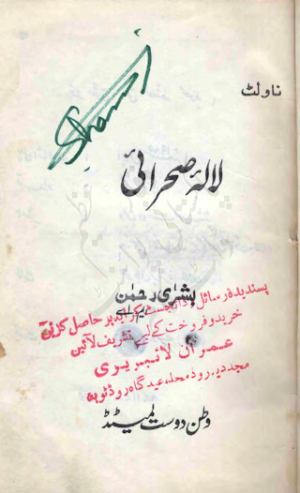 ناولٹ
لالۂ صحرائی
بشریٰ رحمٰن
ایم اے
پسندیدہ رسائل و ڈائجسٹ کرایہ پر حاصل کرنے
خرید و فروخت کے لیے تشریف لائیں
عمران لائبریری
مجددیہ روڈ محلہ عیدگاہ روڈ ٹوبہ
وطن دوست لمیٹڈ